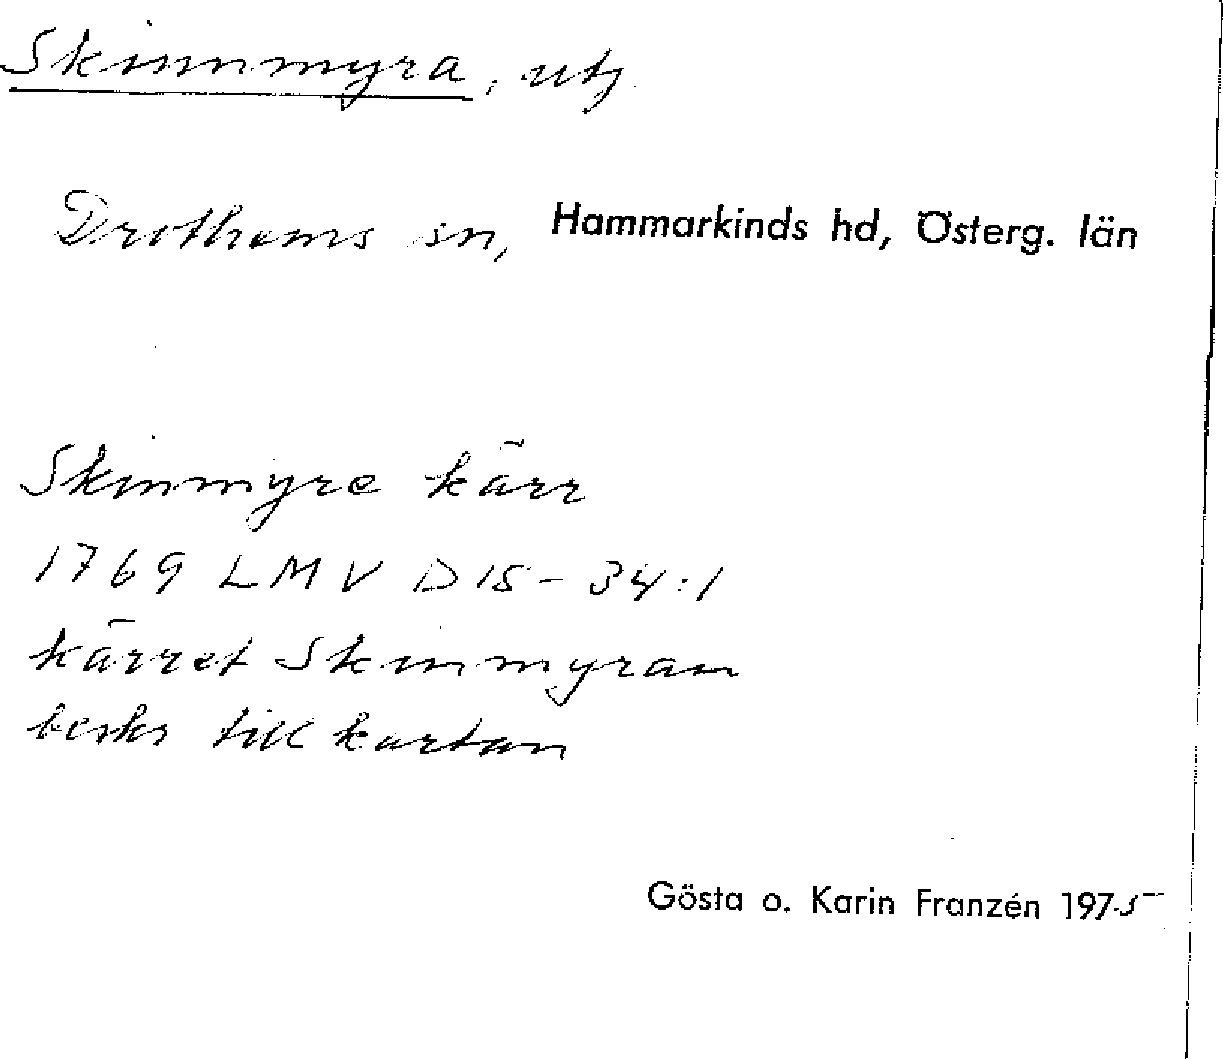 Skinnmyra, utj
Drothems sn, Hammarkinds hd, Österg. län
Skinmyre kärr
1769 LMV D15-34:1
kärret Skinmyran
beskr till kartan
Gösta o. Karin Franzén 1975